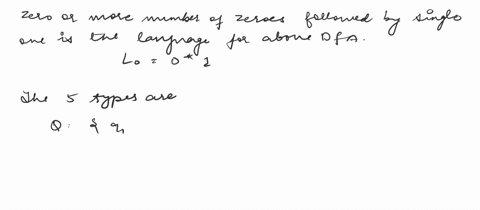 zero or more number of zeroes followed by single
one is the language for above DFA.
L₀ = 0* 1
The 5 types are
Q: { q,